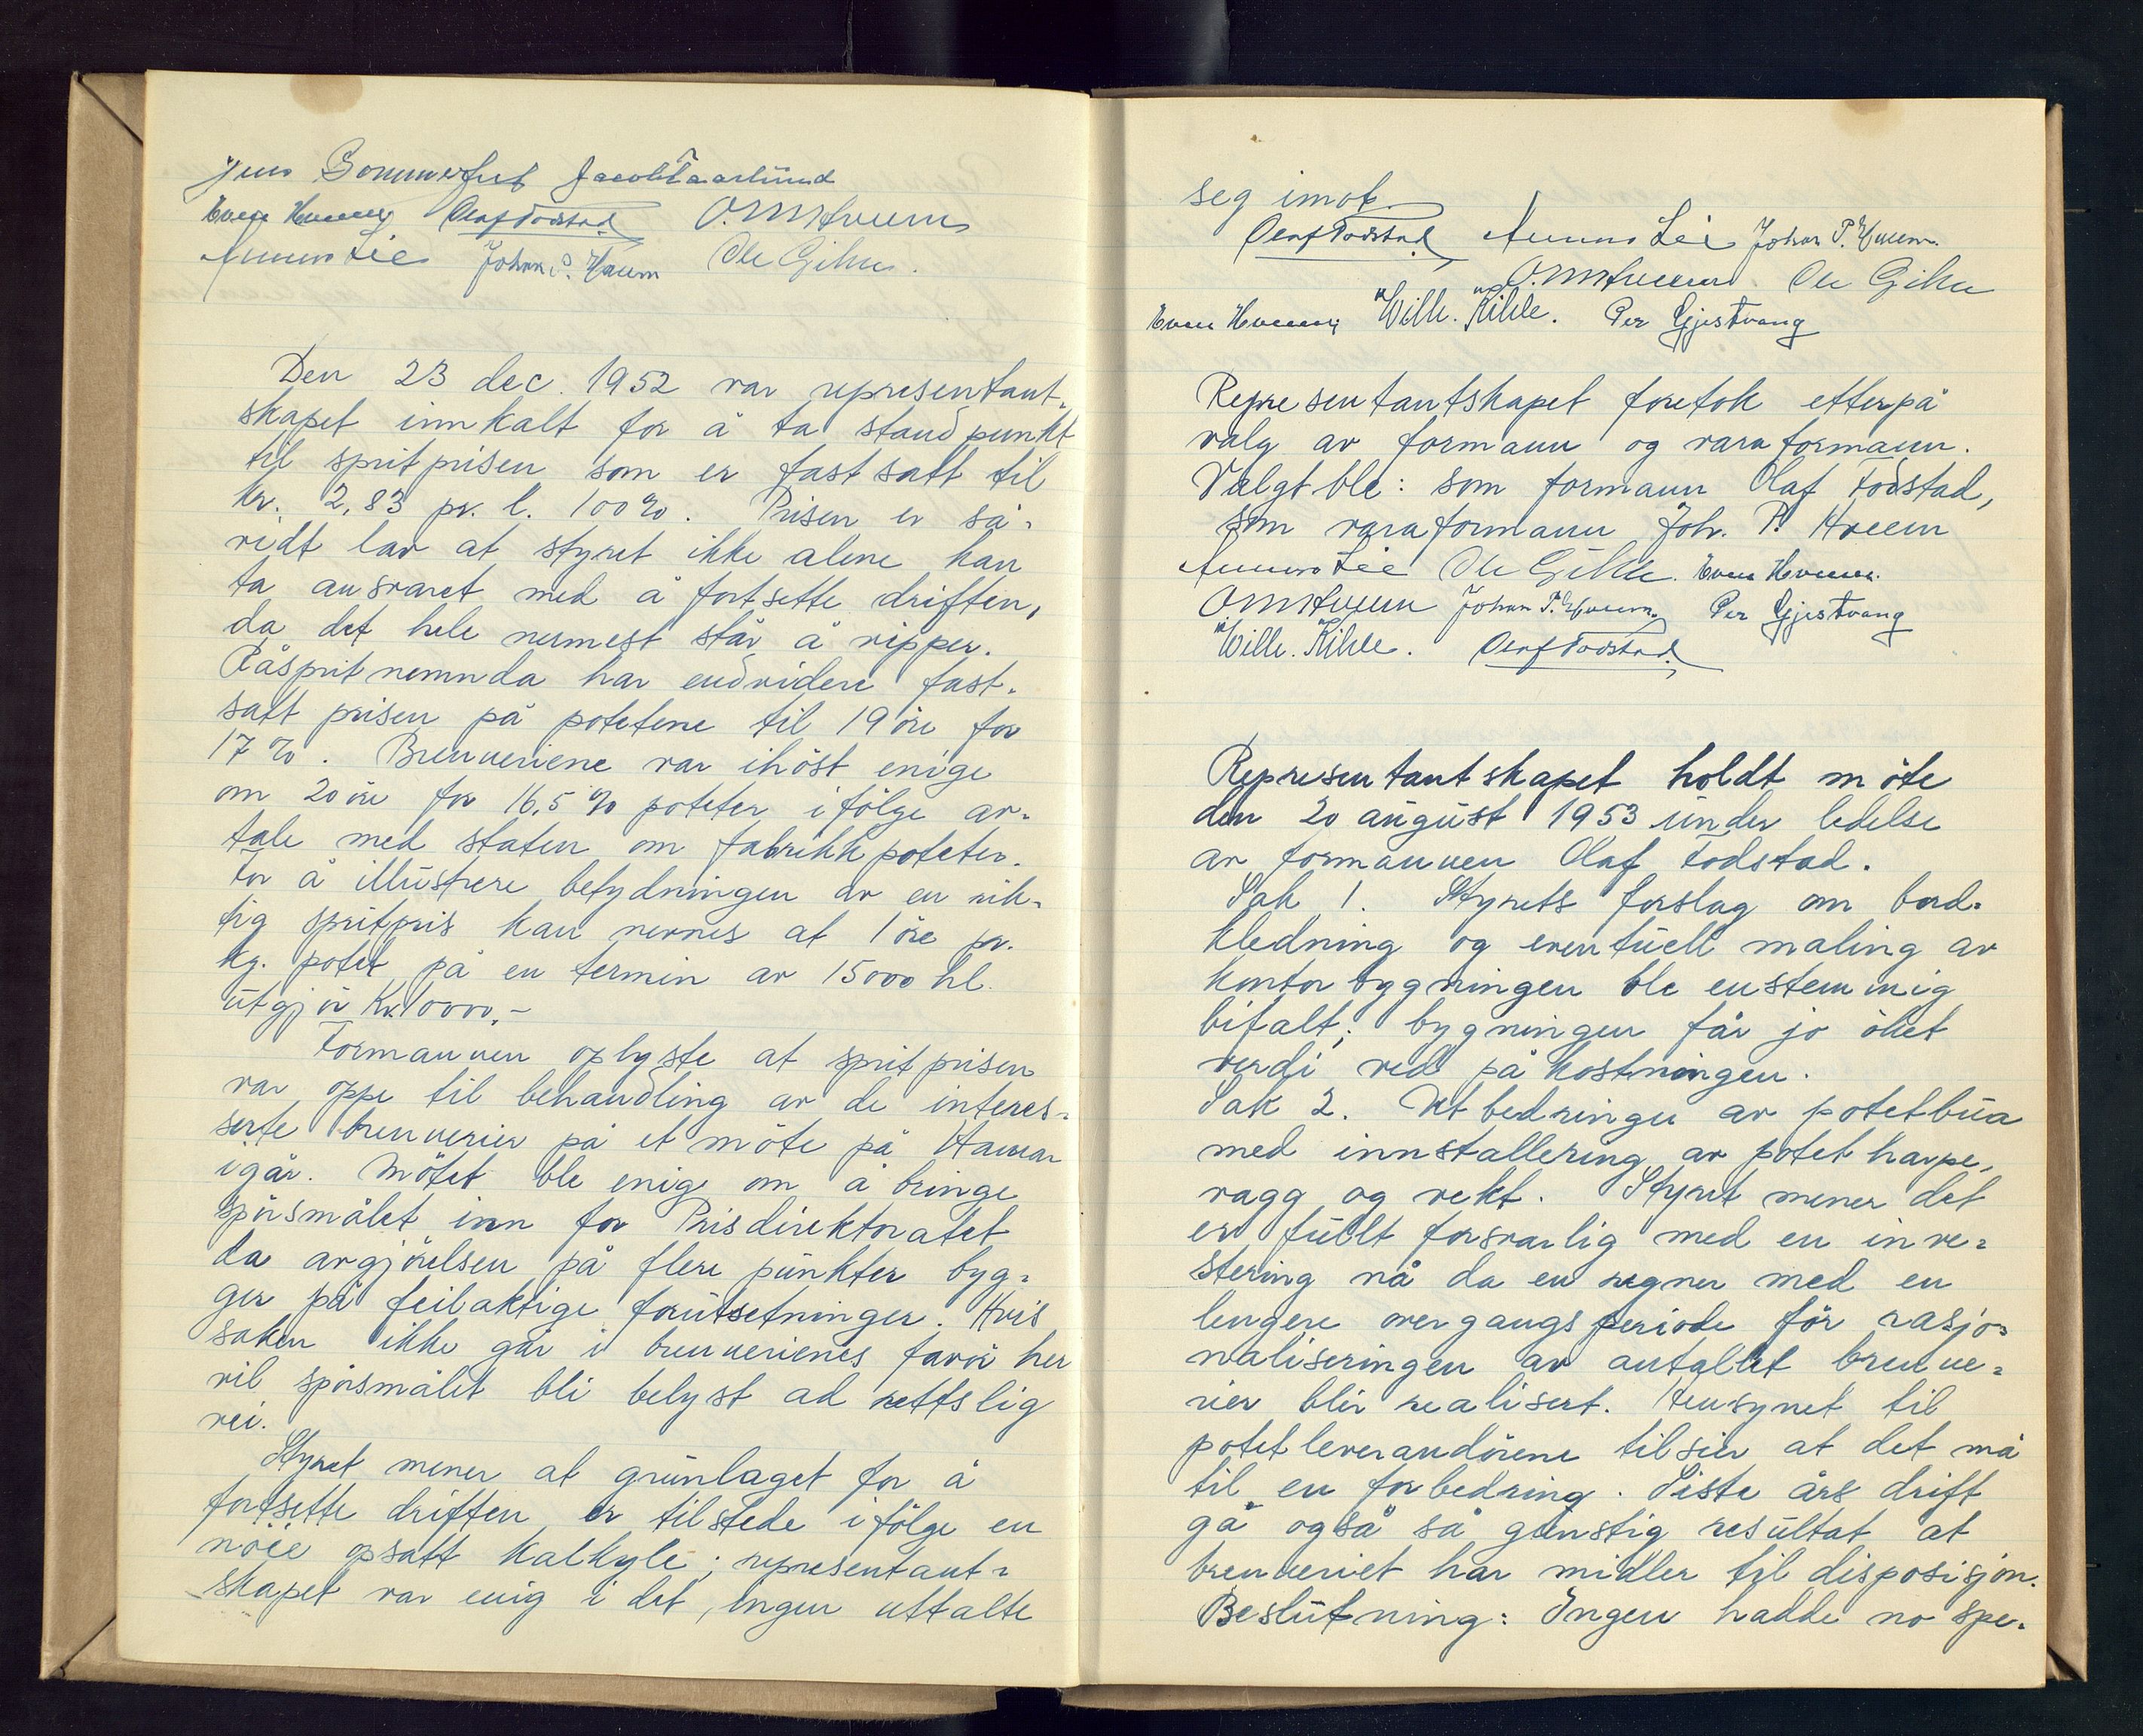 Jens Sommerfelt Jacob Taarlund
Even Hveem Olaf Todstad O. M. Hveem
Lie Johan P. Hveem Ole Gihle.
Den 23 dec. 1952 var representant-
skapet innkalt for å ta standpunkt
til spritprisen som er fastsatt til
kr. 2,83 pr. l. 100%. Prisen er så-
vidt lav at styret ikke alene kan
ta ansvaret med å fortsette driften,
da det hele nermest står å vipper.
Råspritnemnda har endvidere fast-
satt prisen på potetene til 19 öre for
17%. Brenneriene var ihöst enige
om 20 öre for 16,5% poteter ifölge av-
tale med staten om fabrikkpoteter.
For å illustrere betydningen av en rik-
tig spritpris kan nevnes at 1 öre pr.
kg. potet på en termin av 15000 hl.
utgjör kr. 10000,-
Formannen oplyste at spritprisen
var oppe til behandling av de interes-
serte brennerier på et möte på Hamar
igår. Mötet ble enige om å bringe
spörsmålet inn for Prisdirektoratet
da avgjörelsen på flere punkter byg-
ger på feilaktige forutsetninger. Hvis
saken ikke går i brennerienes favör her
vil spörsmålet bli belyst ad rettslig
vei.
Styret mener at grunlaget for å
fortsette driften er tilstede ifölge en
nöie opsatt kalkyle; representant-
skapet var enig i det, ingen uttalte
seg imot.
Olaf Todstad Lie Johan P. Hveem.
O. M. Hveem. Ole Gihle
Even Hveem Wilh. Kihle. Per Gjestvang
Representantskapet foretok etterpå
valg av formann og varaformann.
Valgt ble: som formann Olaf Todstad,
som varaformann Joh. P. Hveem
Lie Ole Gihle. Even Hveem.
O M Hveem Johan P. Hveem. Per Gjestvang
Wilh. Kihle. Olaf Todstad
Representantskapet holdt möte
den 20 august 1953 under ledelse
av formannen Olaf Todstad.
Sak 1. Styrets forslag om bord-
kledning og eventuell maling av
kontorbygningen ble enstemmig
bifalt; bygningen får jo öket
verdi ved påkostningen.
Sak 2. Utbedringen av potetbua
med innstallering av potetharpe,
vagg og vekt. Styret mener det
er fullt forsvarlig med en inve-
stering nå da en regner med en
lengere overgangsperiode för rasjo-
naliseringen av antallet brenne-
rier blir realisert. Hensynet til
potetleverandörene tilsier at det må
til en forbedring. Siste års drift
gå også så gunstig resultat at
brenneriet har midler til disposisjon.
Beslutning: Ingen hadde no spe-